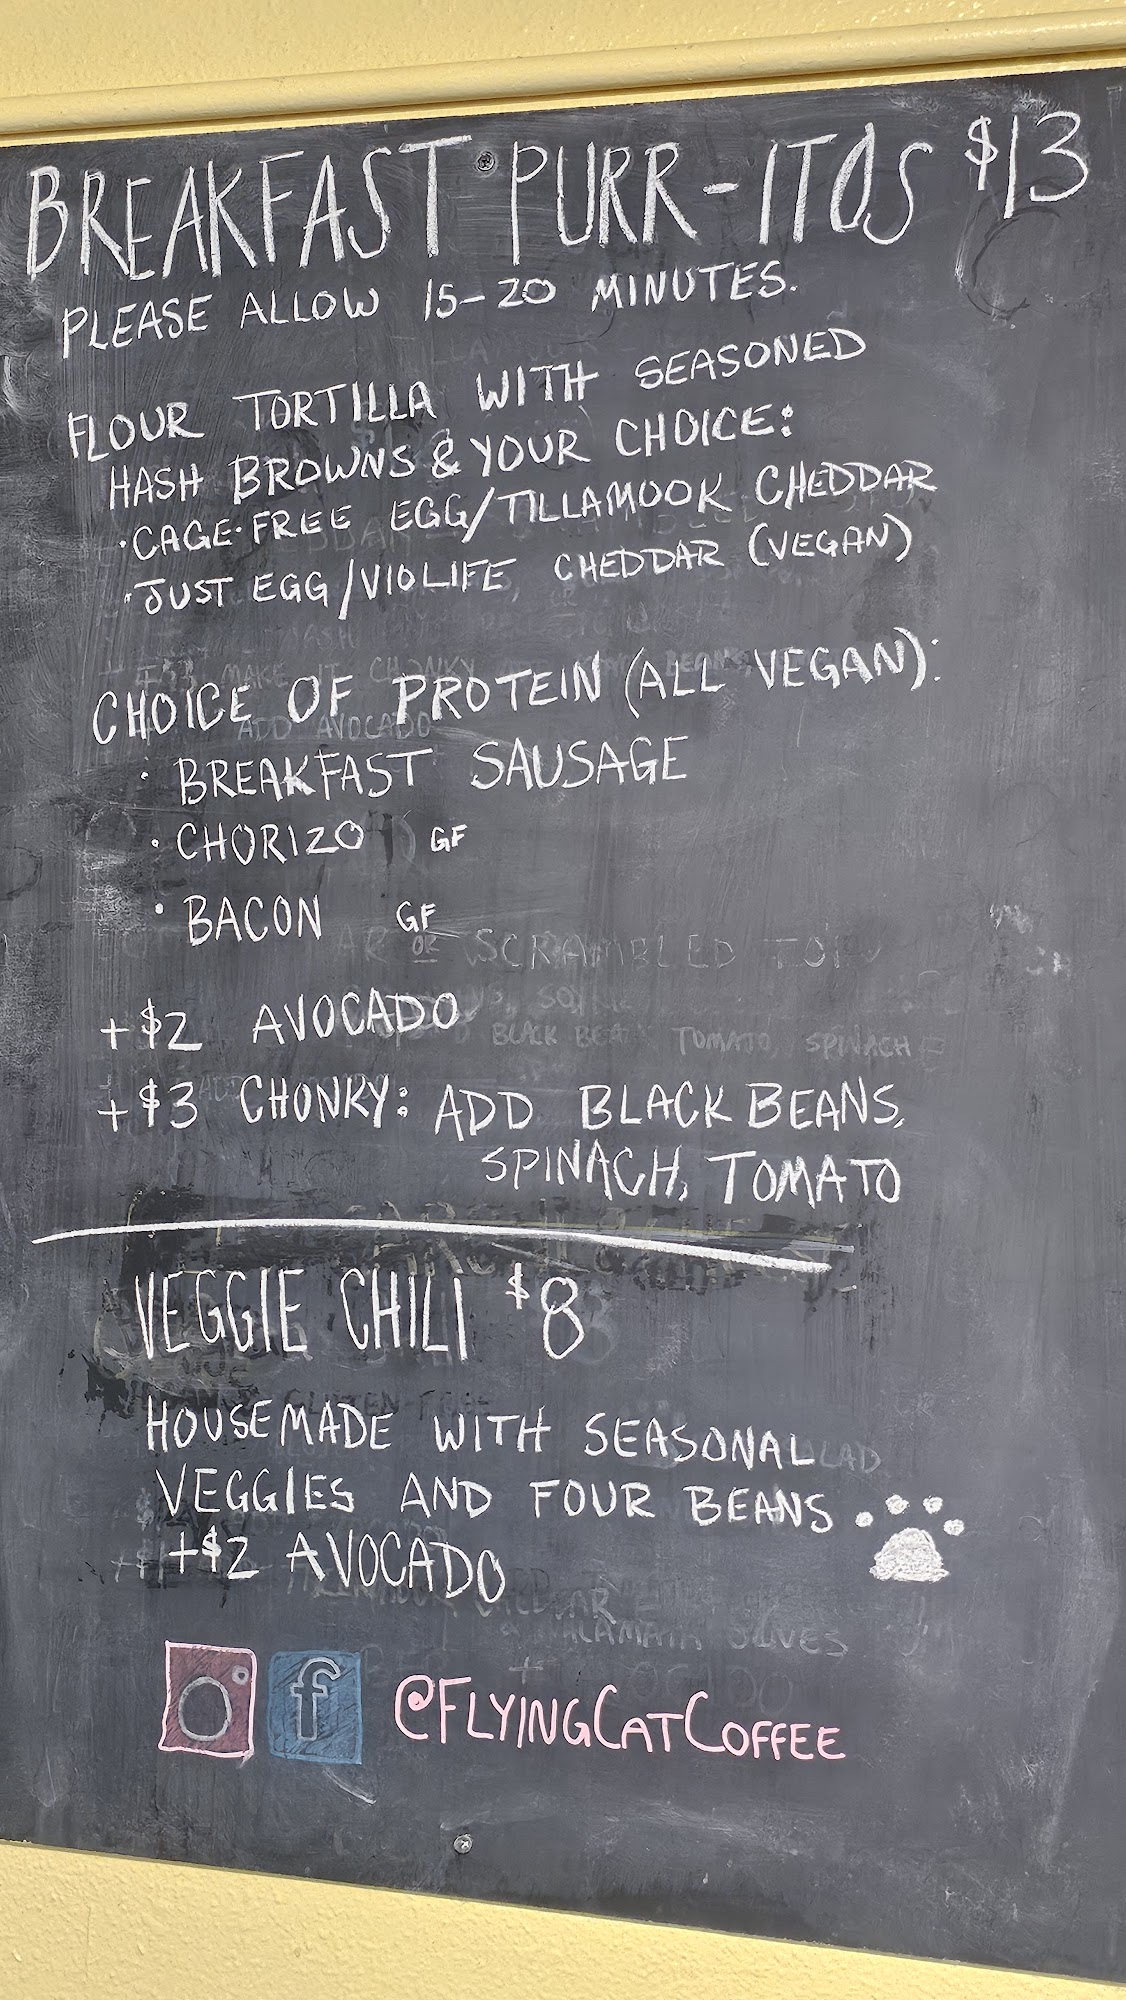 BREAKFAST PURR-ITOS $13
PLEASE ALLOW 15-20 MINUTES.
FLOUR TORTILLA WITH SEASONED
HASH BROWNS & YOUR CHOICE:
·CAGE·FREE EGG/TILLAMOOK CHEDDAR
·JUST EGG/VIOLIFE CHEDDAR (VEGAN)
CHOICE OF PROTEIN (ALL VEGAN):
· BREAKFAST SAUSAGE
· CHORIZO GF
· BACON GF
+$2 AVOCADO
+$3 CHONKY: ADD BLACK BEANS,
SPINACH, TOMATO
VEGGIE CHILI $8
HOUSEMADE WITH SEASONAL
VEGGIES AND FOUR BEANS
+$2 AVOCADO
f @FLYINGCATCOFFEE